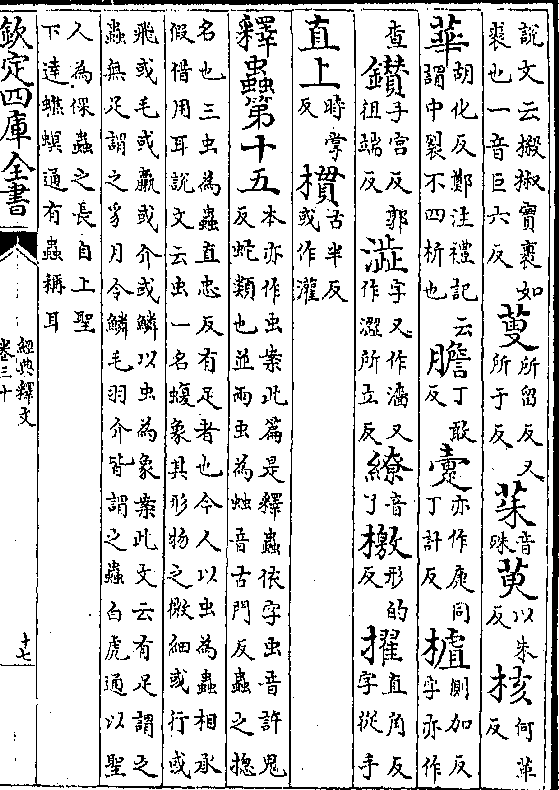 說文云樧椒實裹如裘也一音巨六反蓃所留反又所于反茱音殊萸以朱反核何革反
華胡化反鄭注禮記云謂中裂不四析也膽丁敢反疐亦作疌同丁計反樝側加反字亦作
查鑚子官反郭徂端反澁字又作濇又作澀所立反繚音了檄形的反擢直角反字從手
直上時掌反摜古半反或作灌
釋蟲第十五本亦作虫案此篇是釋蟲依字虫音許鬼反虵類也並兩虫為䖵音古門反蟲之揔
名也三虫為蟲直忠反有足者也今人以虫為蟲相承
假借用耳說文云虫一名蝮象其形物之㣲細或行或
飛或毛或臝或介或鱗以虫為象案此文云有足謂之
蟲無足謂之豸月令鱗毛羽介皆謂之蟲白虎通以聖
人為倮蟲之長自上聖
下達蠛蠓通有蟲稱耳
欽定四庫全書
經典釋文
卷三十
十七